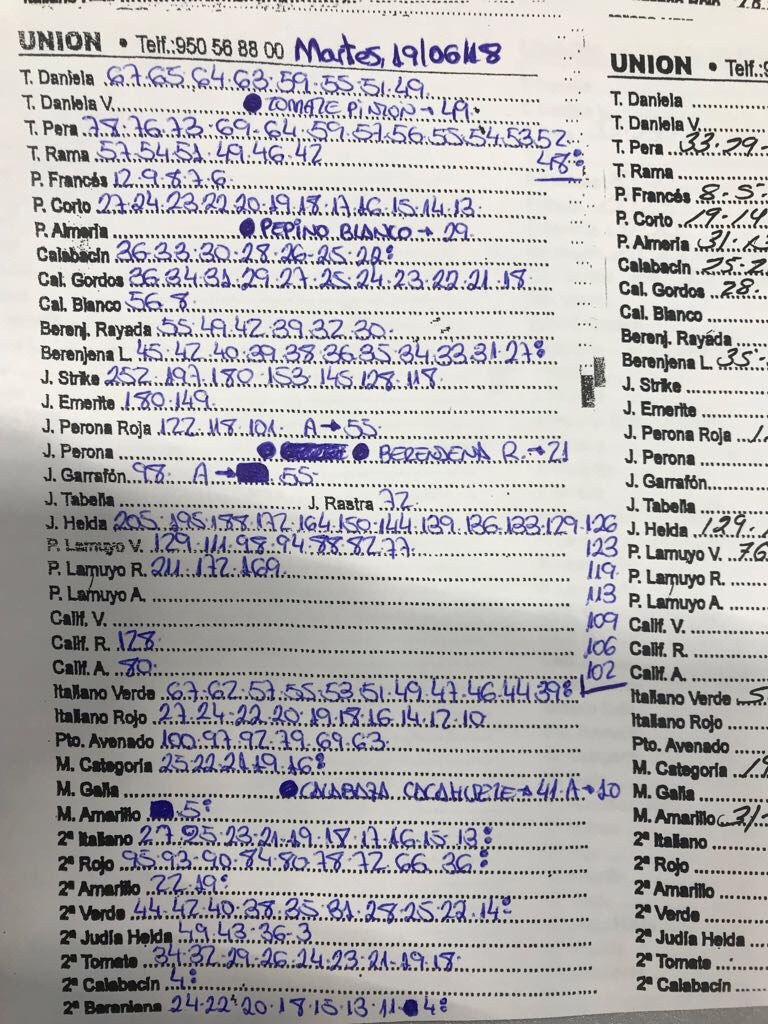 UNION • Telf.:950 56 88 00 Martes, 19/06/18
T. Daniela 67·65·64·63·59·55·51·49·
T. Daniela V. ● TOMATE PINTON → 49·
T. Pera 78·76·73·69·64·59·57·56·55·54·53·52
T. Rama 57·54·51·49·46·42 48:
P. Francés 12·9·8·7·6·
P. Corto 27·24·23·22·20·19·18·17·16·15·14·13·
P. Almería ● PEPINO BLANCO → 29·
Calabacín 36·33·30·28·26·25·22:
Cal. Gordos 36·34·31·29·27·25·24·23·22·21·18·
Cal. Blanco 56·8·
Berenj. Rayada 55·49·42·39·32·30·
Berenjena L. 45·42·40·39·38·36·35·34·33·31·27:
J. Strike 252·197·180·153·145·128·118·
J. Emerite 180·149·
J. Perona Roja 122·118·101· A→55·
J. Perona ● ● BERENJENA R.→21
J. Garrafón 98· A→ 55·
J. Tabella J. Rastra 72
J. Helda 205·195·188·172·164·150·144·139·136·133·129·126
P. Lamuyo V. 129·111·98·94·88·82·77· 123
P. Lamuyo R. 211·172·169· 119
P. Lamuyo A. 113
Calif. V. 109
Calif. R. 128 106
Calif. A. 80 102
Italiano Verde 67·62·57·55·53·51·49·47·46·44·39:
Italiano Rojo 27·24·22·20·19·18·16·14·12·10
Pto. Avenado 100·97·92·79·69·63·
M. Categoria 25·22·21·19·16:
M. Galia ● CALABAZA CACAHUETE→41·A→10
M. Amarillo 5:
2ª Italiano 27·25·23·21·19·18·17·16·15·13:
2ª Rojo 95·93·90·84·80·78·72·66·36:
2ª Amarillo 22·19:
2ª Verde 44·42·40·38·35·31·28·25·22·14:
2ª Judía Helda 49·43·36·3
2ª Tomate 34·32·29·26·24·23·21·19·18·
2ª Calabacín 4:
2ª Berenjena 24·22·20·18·15·13·11·4:
UNION • Telf.:9
T. Daniela
T. Daniela V.
T. Pera 33·29·
T. Rama
P. Francés 8·5·
P. Corto 19·14
P. Almería 31·
Calabacín 25·2
Cal. Gordos 28·
Cal. Blanco
Berenj. Rayada
Berenjena L. 35·
J. Strike
J. Emerite
J. Perona Roja 1
J. Perona
J. Garrafón
J. Tabella
J. Helda 129·1
P. Lamuyo V. 76
P. Lamuyo R.
P. Lamuyo A.
Calif. V.
Calif. R.
Calif. A.
Italiano Verde 5
Italiano Rojo
Pto. Avenado
M. Categoria 19
M. Galia
M. Amarillo 31·
2ª Italiano
2ª Rojo
2ª Amarillo
2ª Verde
2ª Judía Helda
2ª Tomate
2ª Calabacín